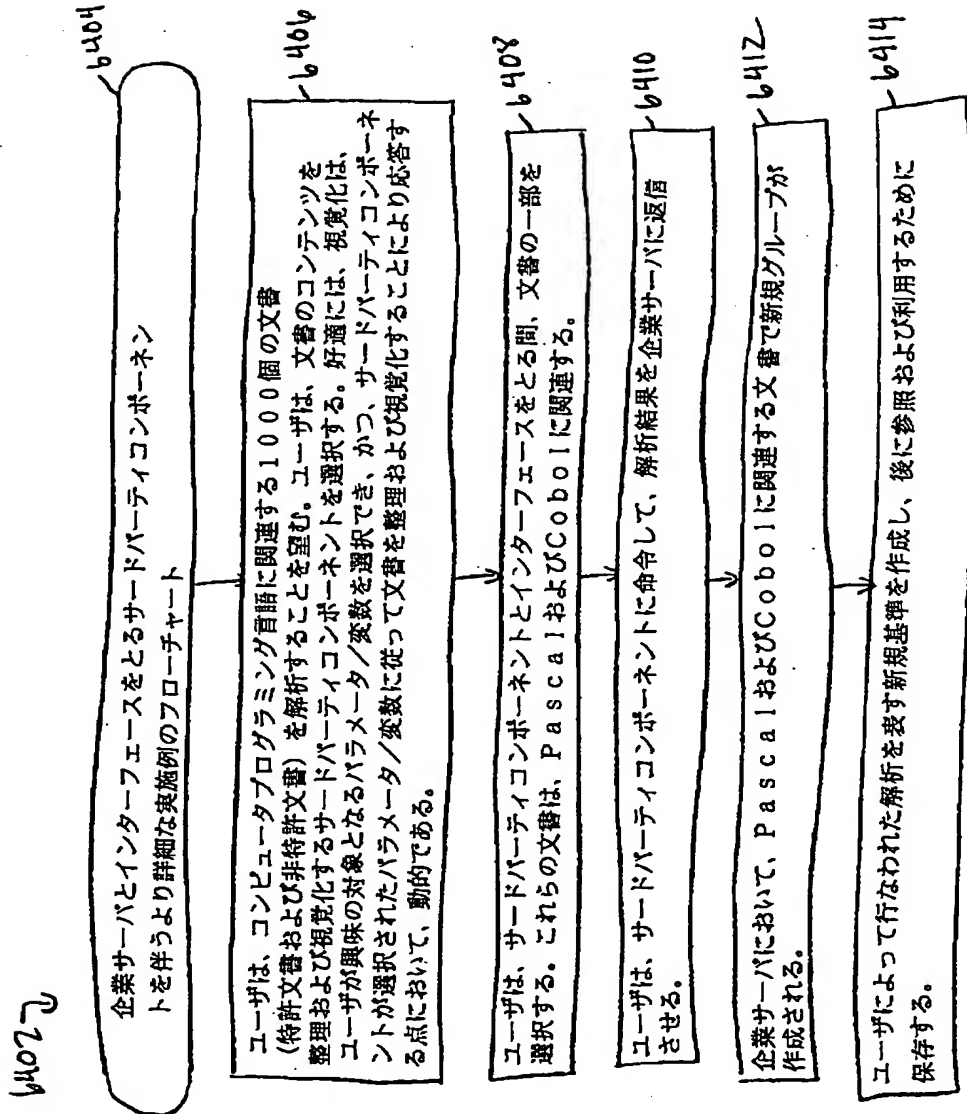 6402
6404
企業サーバとインターフェースをとるサードパーティコンポーネン
トを伴うより詳細な実施例のフローチャート
6406
ユーザは、コンピュータプログラミング言語に関連する1000個の文書
(特許文書および非特許文書)を解析することを望む。ユーザは、文書のコンテンツを
整理および視覚化するサードパーティコンポーネントを選択する。好適には、視覚化は、
ユーザが興味の対象となるパラメータ/変数を選択でき、かつ、サードパーティコンポーネ
ントが選択されたパラメータ/変数に従って文書を整理および視覚化することにより応答す
る点において、動的である。
6408
ユーザは、サードパーティコンポーネントとインターフェースをとる間、文書の一部を
選択する。これらの文書は、PascalおよびCobolに関連する。
6410
ユーザは、サードパーティコンポーネントに命令して、解析結果を企業サーバに返信
させる。
6412
企業サーバにおいて、PascalおよびCobolに関連する文書で新規グループが
作成される。
6414
ユーザによって行なわれた解析を表す新規基準を作成し、後に参照および利用するために
保存する。